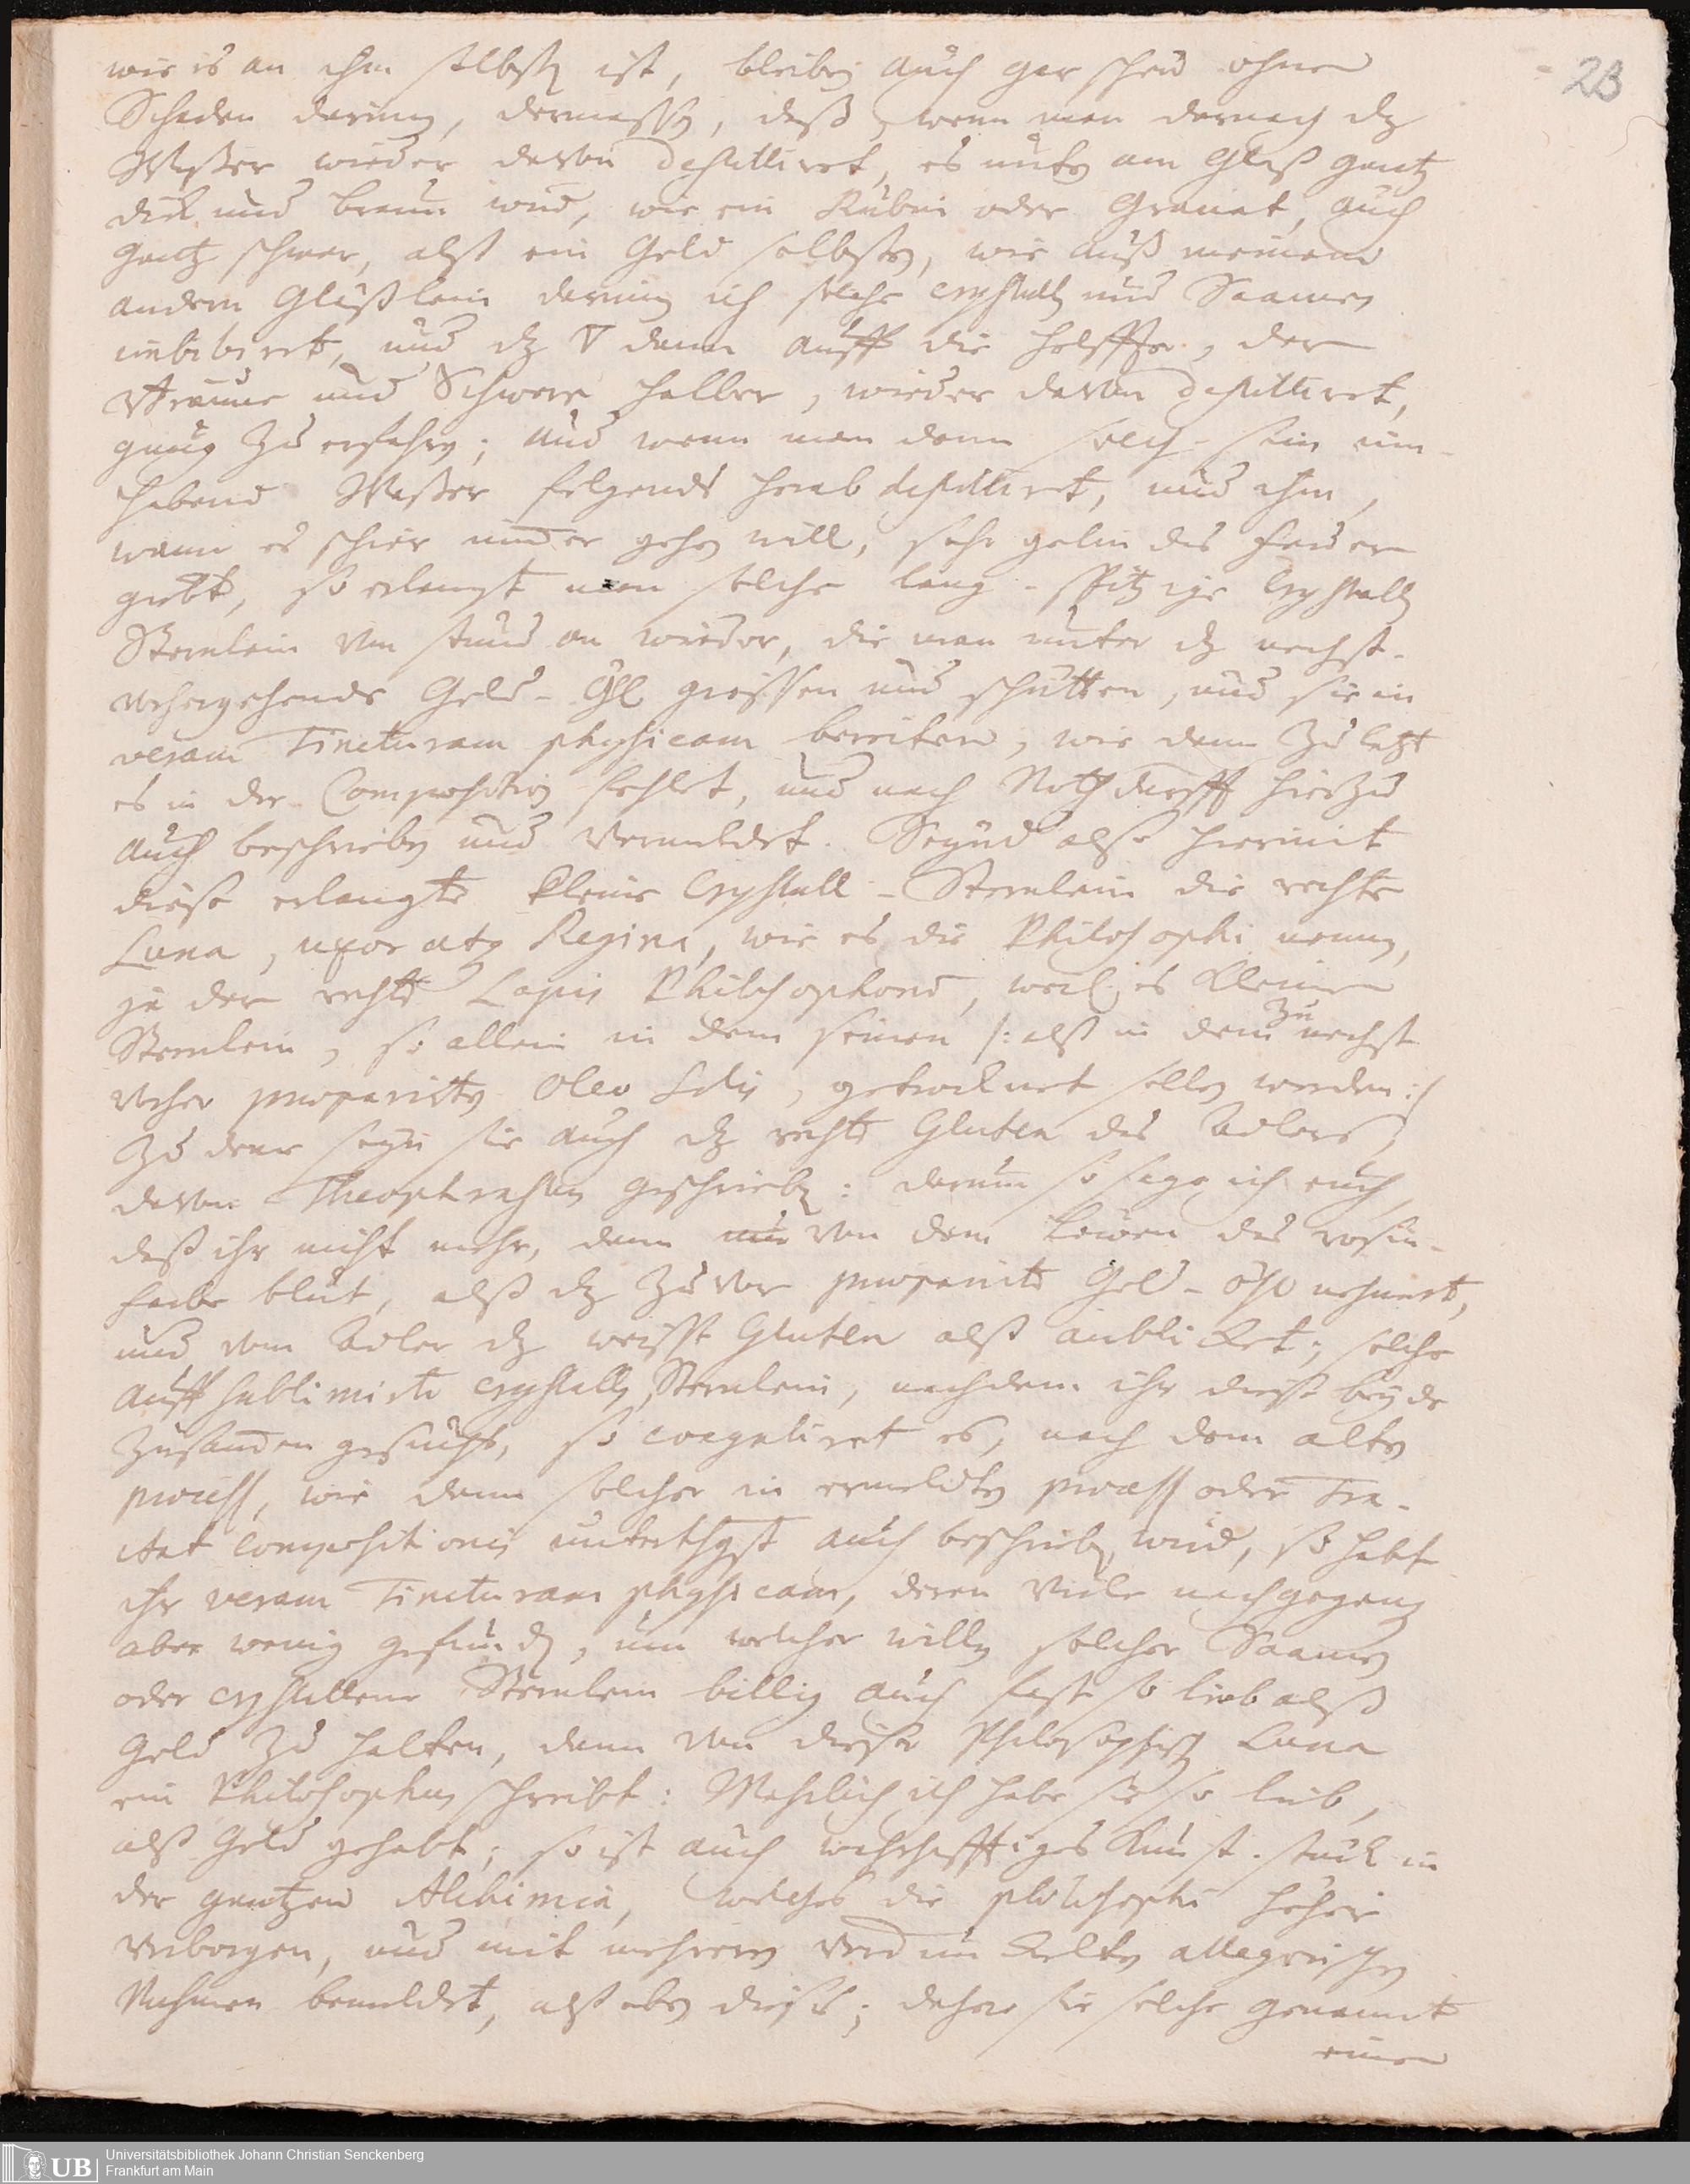 23
wie es an ihm selbst ist, bleibe auch gar schön ohne
Schaden darinn, dermassen, daß, wenn man darnach dz
Wasser wieder davon destilliret, es unten am Glaß gantz
dick und braun wird, wie ein Rubin oder Granat, auch
gantz schwer, alß ein Gold selbsten, wie auß meinem
andern Gläßlein darinn ich solche crystall und Saamen
imbibiret, und dz ▽ dann auff die helffte, der
Bräune und Schwere halber, wieder davon destilliret,
gnug zu erfahren; und wenn man dann solch sein inn-
habend Wasser folgends herab destilliret, und ihm,
wann es schier nieder gehen will, sehr gelindes feuer
giebt, so erlangt man solche lang-spitzige Crystall
Sternlein von stund an wieder, die man unter dz nechst-
vorhergehende Gold-Öhl giessen und schütten, und sie in
veram Tincturam physicam bereiten, wie dann zu letzt
es in der Composition fehlet, und nach Nothdurfft hierzu
auch beschrieben und vermeldet. Seynd also hiermit
diese erlangte kleine Crystall-Sternlein die rechte
Luna, uxor atq Regina, wie es die Philosophi nennen,
ja der rechte Lapis Philosophorum, weil es kleine
Sternlein, so allein in dem seinen /: alß in dem zu nechst
vorher praeparirten Oleo Solis, getrocknet sollen werden :/
Zu deme seyn sie auch dz rechte Gluten des Adlers,
davon Theophrastus geschrieben: darum so sage ich euch,
daß ihr nicht mehr, dann von dem Löwen des rosin-
farbe blut, alß dz zuvor praeparirte Gold-öhl nehmet,
und vom Adler dz weisse Gluten alß anblicket; solche
auff sublimirte crystallen Sternlein, nachdem ihr diese beyde
zusammen gefüget, so coaguliret es, nach dem alten
process, wie dann solcher in ermeldten process oder Tra-
ctat compositionis auch beschrieben wird, so habt
ihr veram Tincturam physicam, deren viele nachgegangen
aber wenig gefunden, um welcher willen solcher Saamen
oder crystallene Sternlein billig auch fast so lieb alß
Gold zu halten, dann von dieser Philosophischen Luna
ein Philosophus schreibt: Wahrlich ich habe sie so lieb,
alß Gold gehabt; so ist auch wahrhafftiges Kunst-stück in
der gantzen Alchimia, welches die philosophi höher
verborgen, und mit mehreren verdunckelten allegorischen
Nahmen bemeldet, alß eben diese; daher sie solche genannt
einen
UB Universitätsbibliothek Johann Christian Senckenberg
Frankfurt am Main